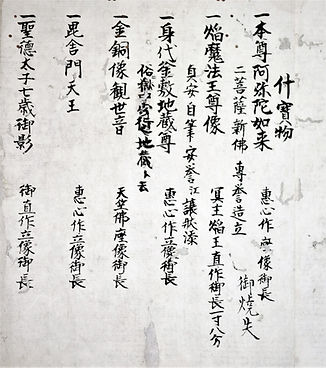 什寳物
一本尊阿弥陀如来 惠心作立像御長
御焼失
二菩薩新佛 専誉造立
一焔魔法王尊像 冥王焔王直作御長一寸八分
貞安自筆安誉江譲状添
一身代釜敷地蔵尊 惠心作立像御長
俗ニ 地蔵ト云
一金銅像観世音 天竺佛座像御長
一毘舎門天王 惠心作立像御長
一聖徳太子七歳御影 御直作立像御長